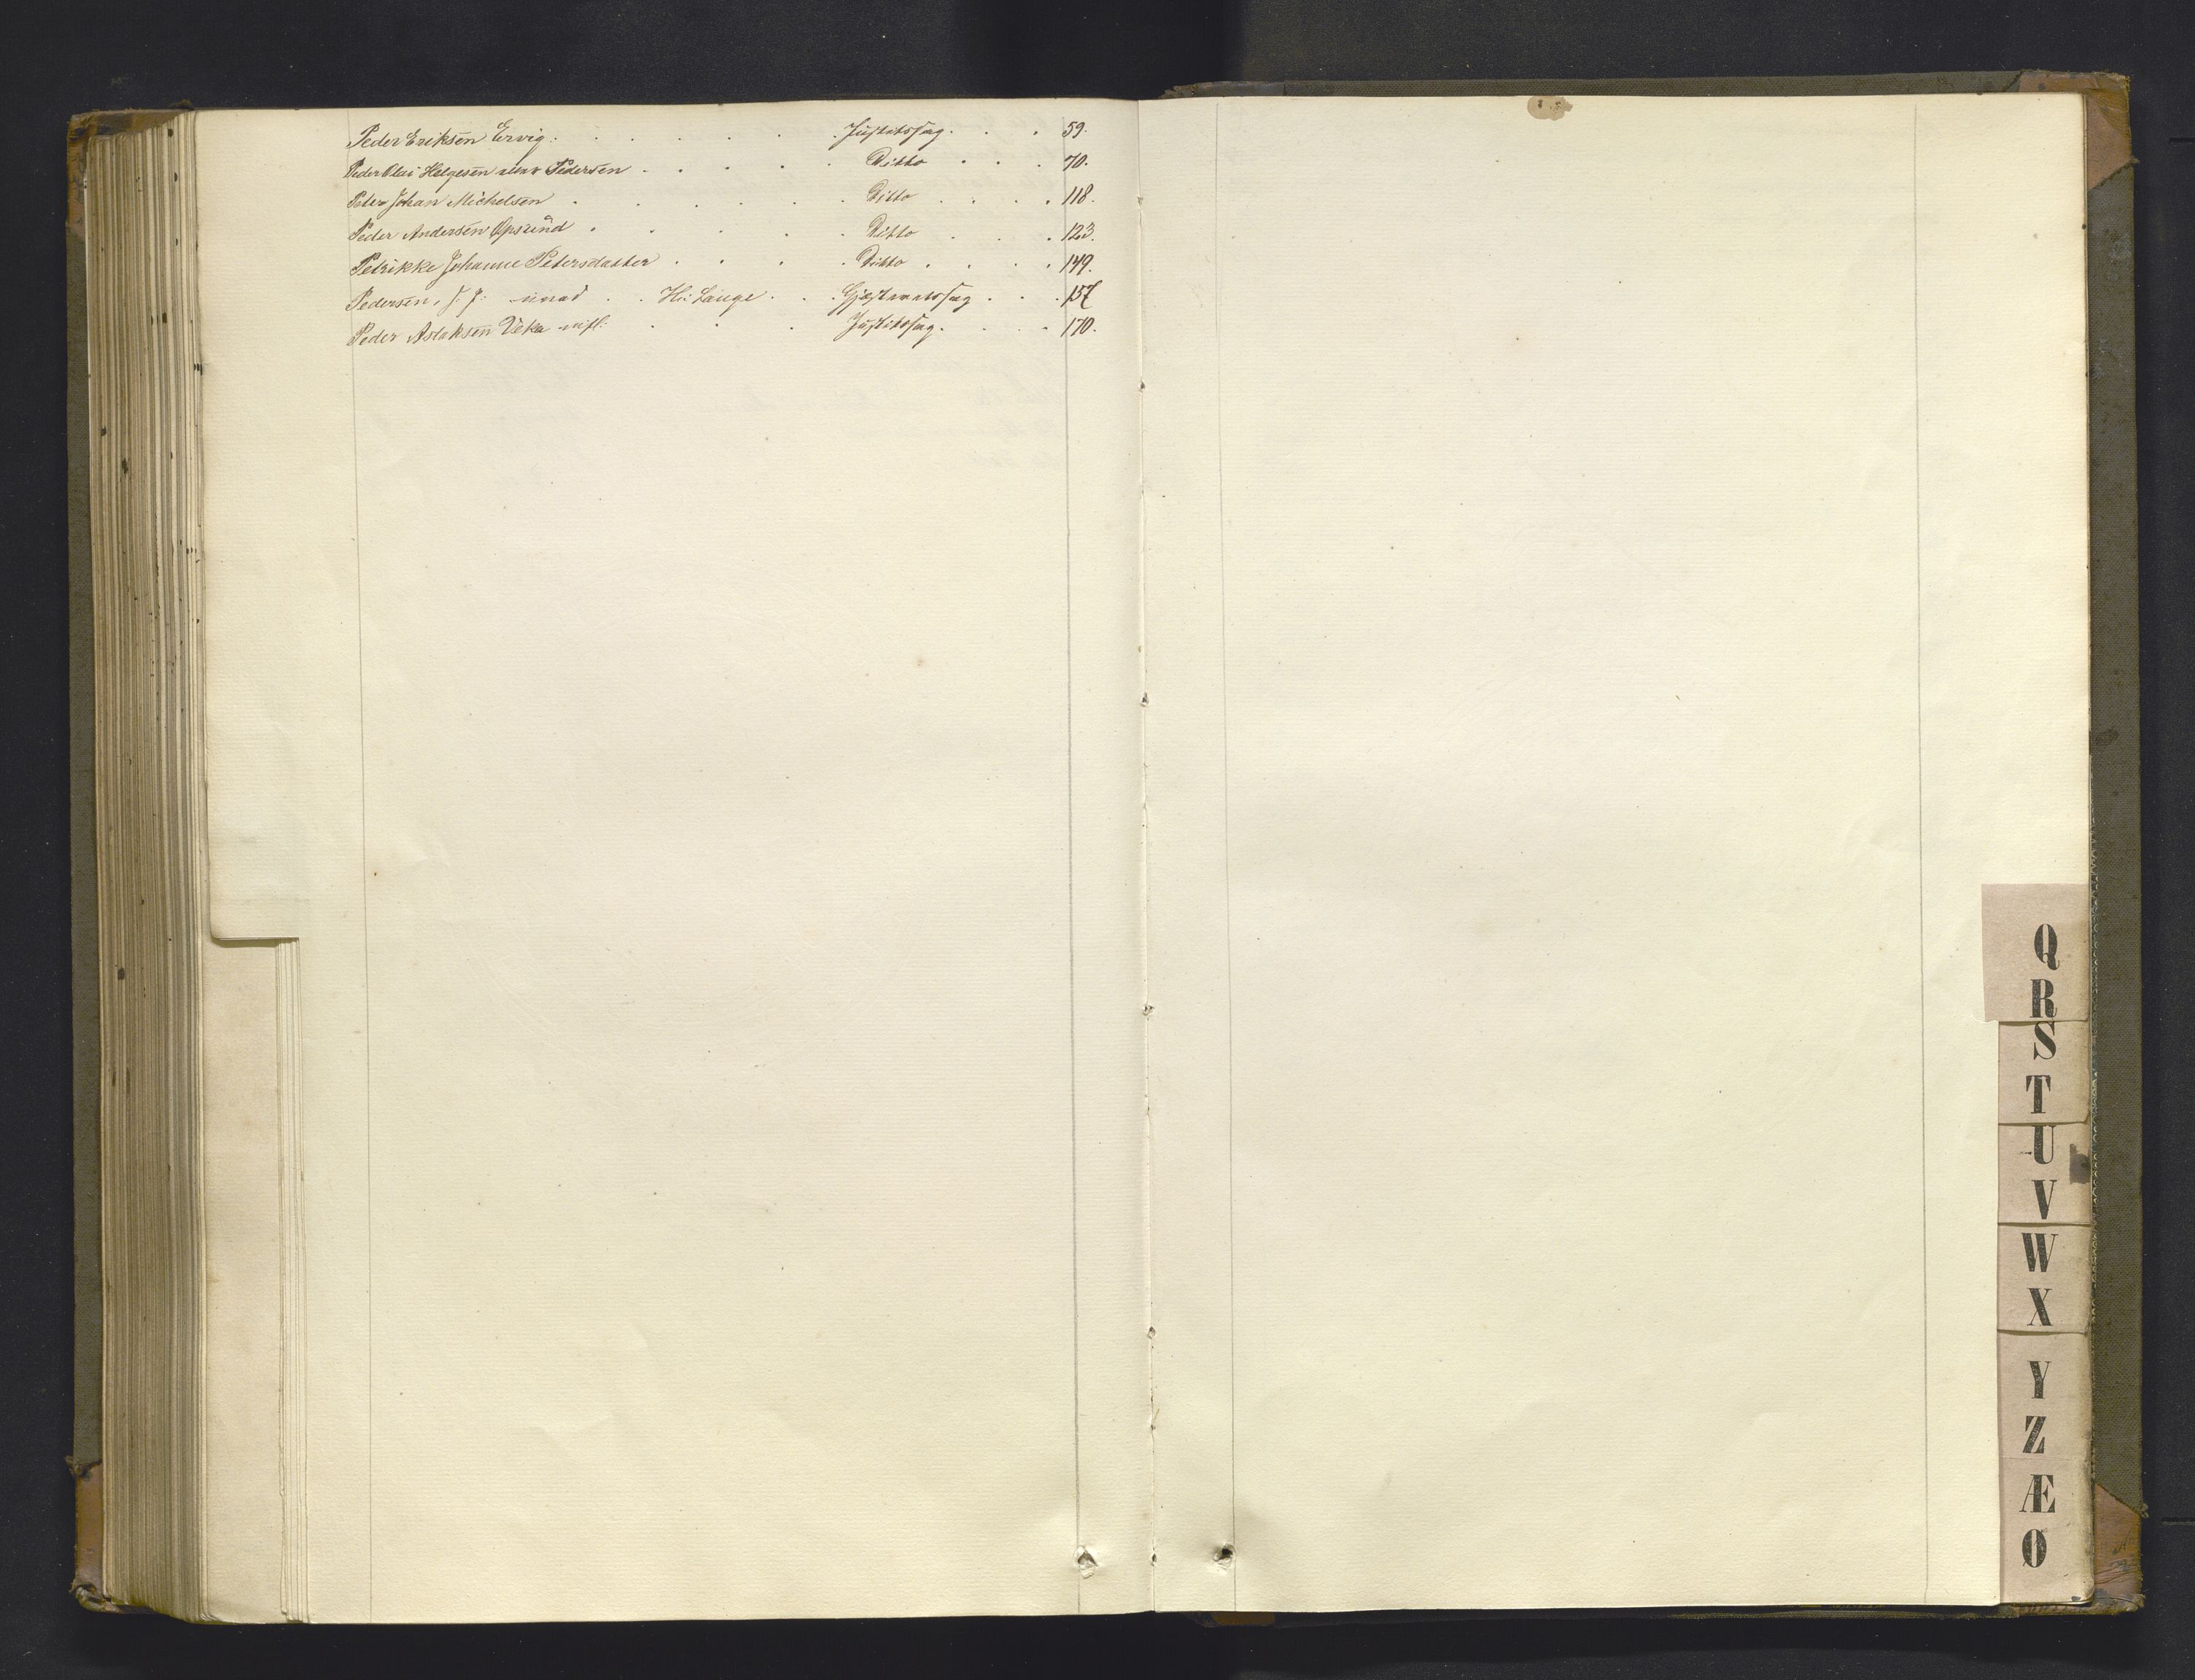 Peder Eriksen Ervig . . . . . . Justitssag . . . 59.
Peder Olai Helgesen eller Pedersen . . . . . Ditto . . . 70.
Peter Johan Michelsen . . . . . . Ditto . . . . 118.
Peder Andersen Opsund . . . . . Ditto . . . 123.
Petrikke Johanne Petersdatter . . . . Ditto . . . . 149.
Pedersen, J. J. imod . . H. Lange . . . Gjesteretssag . . . 157
Peder Aslaksen . . . . Justitssag . . . . 170.
Q
R
S
T
U
V
W
X
Y
Z
Æ
Ø